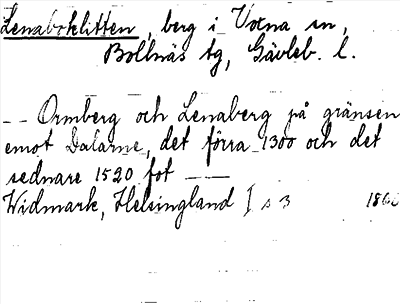 Lenaboklitten, berg i Voxna sn,
Bollnäs tg, Gävleb. l.
-- Ormberg och Lenaberg på gränsen
emot Dalarne, det förra 1300 och det
sednare 1520 fot --
Widmark, Helsingland I s 3 1860